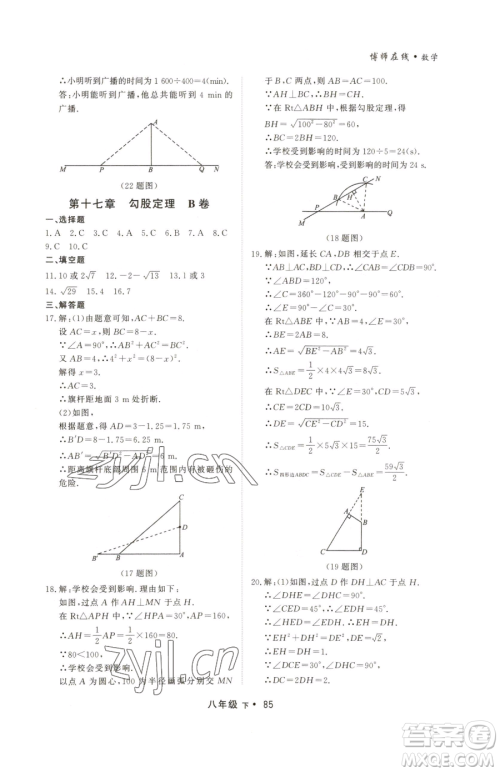 博师在线·数学
∴小明听到广播的时间为1 600÷400=4(分).
答:小明能听到广播,他总共能听到4分的
广播.
A
M P B Q N
(22题图)
第十七章 勾股定理 B卷
一、选择题
1. A 2. A 3. C 4. C 5. B 6. D 7. A 8. C
9. C 10. C
二、填空题
11. 10或2√7 12. -2-√13 13. 4
14. √29 15. 4 16. 7
三、解答题
17. 解:(1)由题意可知AC+BC=8.
设AC=x,则BC=8-x.
∵∠A=90°,∴AB²+AC²=BC².
又AB=4,∴4²+x²=(8-x)².
解得x=3.
∴旗杆距地面3 m处折断.
(2)如图.
根据题意,得AD=3-1.25=1.75.
∴B'D=8-1.75=6.25.
∴AB'=√(B'D²-AD²)=6 m.
∴距离旗杆底部周围6 m范围内有被砸伤的
危险.
C
D
B' B A
(17题图)
18. 解:学校会受到影响.理由如下:
如图,过点A作AH⊥MN于点H.
在Rt△APH中,∵∠HPA=30°,
∴AH=1/2 AP=1/2×160=80.
∵80<100,
∴学校会受到影响.
于B,C两点,则AB=AC=100.
∵AH⊥BC,∴BH=CH.
在Rt△ABH中,根据勾股定理,得
BH=√(100²-80²)=60.
∴BC=2BH=120.
∴学校受到影响的时间为120÷5=24(s).
答:学校受到影响的时间为24 s.
C N
H
P
M A Q
(18题图)
19. 解:如图,延长CA,DB相交于点E.
∵∠CAB=90°,∴∠CAB=∠CDB=90°.
∵∠ABD=120°,
∴∠C=360°-120°-90°-90°=60°.
∴∠E=30°.
在Rt△ABE中,∵∠E=30°,AB=4,
∴BE=2AB=8.
∴AE=√(BE²-AB²)=4√3.
∴S△ABE=1/2×4×4√3=8√3.
在Rt△DEC中,∵∠E=30°,CD=5√3,
∴DE=√(CE²-CD²)=15.
∴S△CDE=1/2×5√3×15=75√3/2.
∴S四边形ABDC=S△CDE-S△ABE=59√3/2.
E
(19题图)
20. 解:(1)如图,过点D作DH⊥AC于点H.
∴∠DHE=∠DHC=90°.
∴∠HED=∠EDH.
∴EH=DH.
∵EH²+DH²=DE²,DE=√2,
∴EH²=1.∴EH=DH=1.
∵∠DCE=30°,∠DHC=90°,
∴DC=2.
八年级 下·85